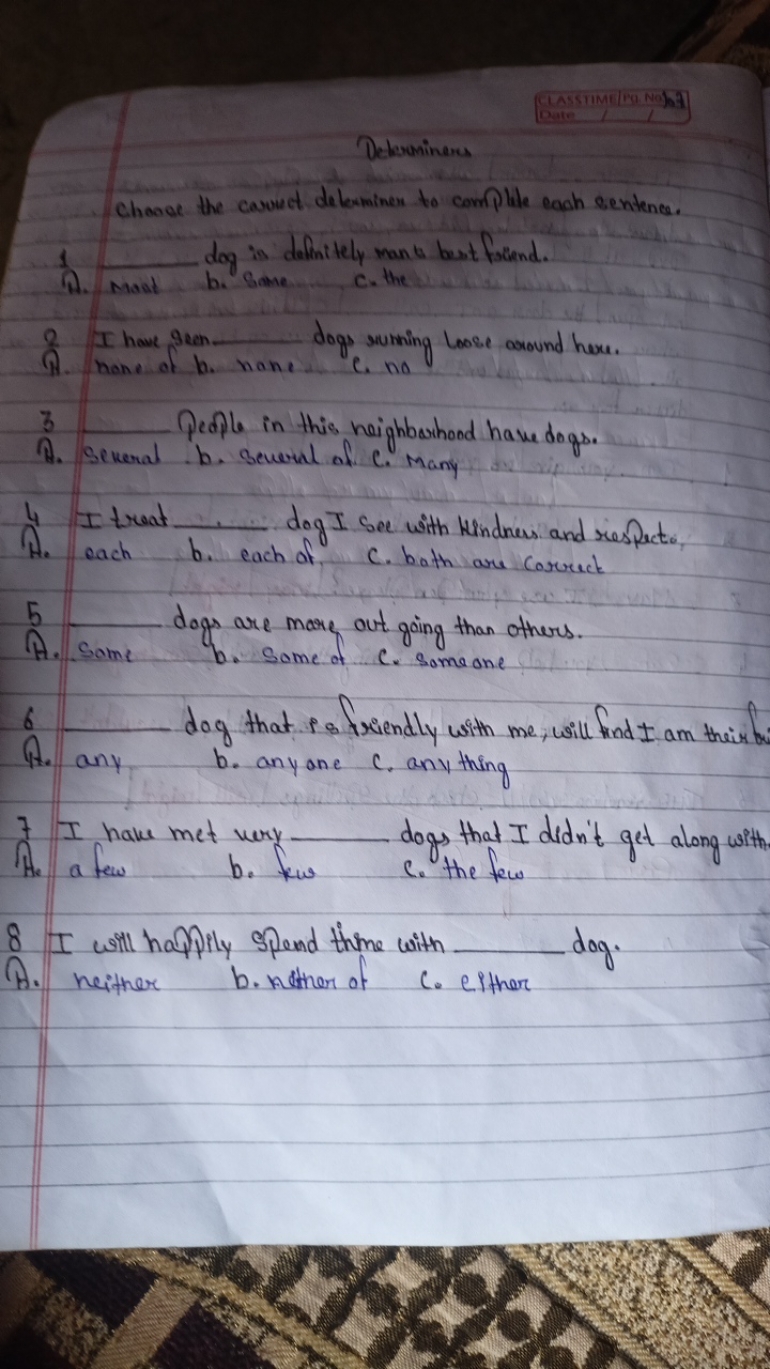 CLASSTIME/Pg. No.
Date / /
Determiners
Choose the correct determiner to complete each sentence.
1 ______ dog is definitely man's best friend.
A. most b. some c. the
2 I have seen ______ dogs running loose around here.
A. none of b. none c. no
3 ______ people in this neighborhood have dogs.
A. several b. several of c. many
4 I treat ______ dog I see with kindness and respect.
A. each b. each of c. both are correct
5 ______ dogs are more out going than others.
A. some b. some of c. someone
6 ______ dog that is friendly with me, will find I am their
A. any b. any one c. any thing
7 I have met very ______ dogs that I didn't get along with.
A. a few b. few c. the few
8 I will happily spend time with ______ dog.
A. neither b. nether of c. either